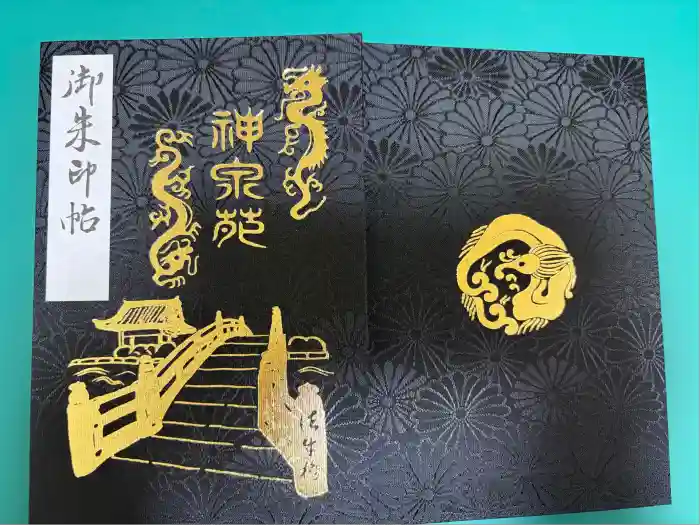 御朱印帖
神泉苑
法成橋